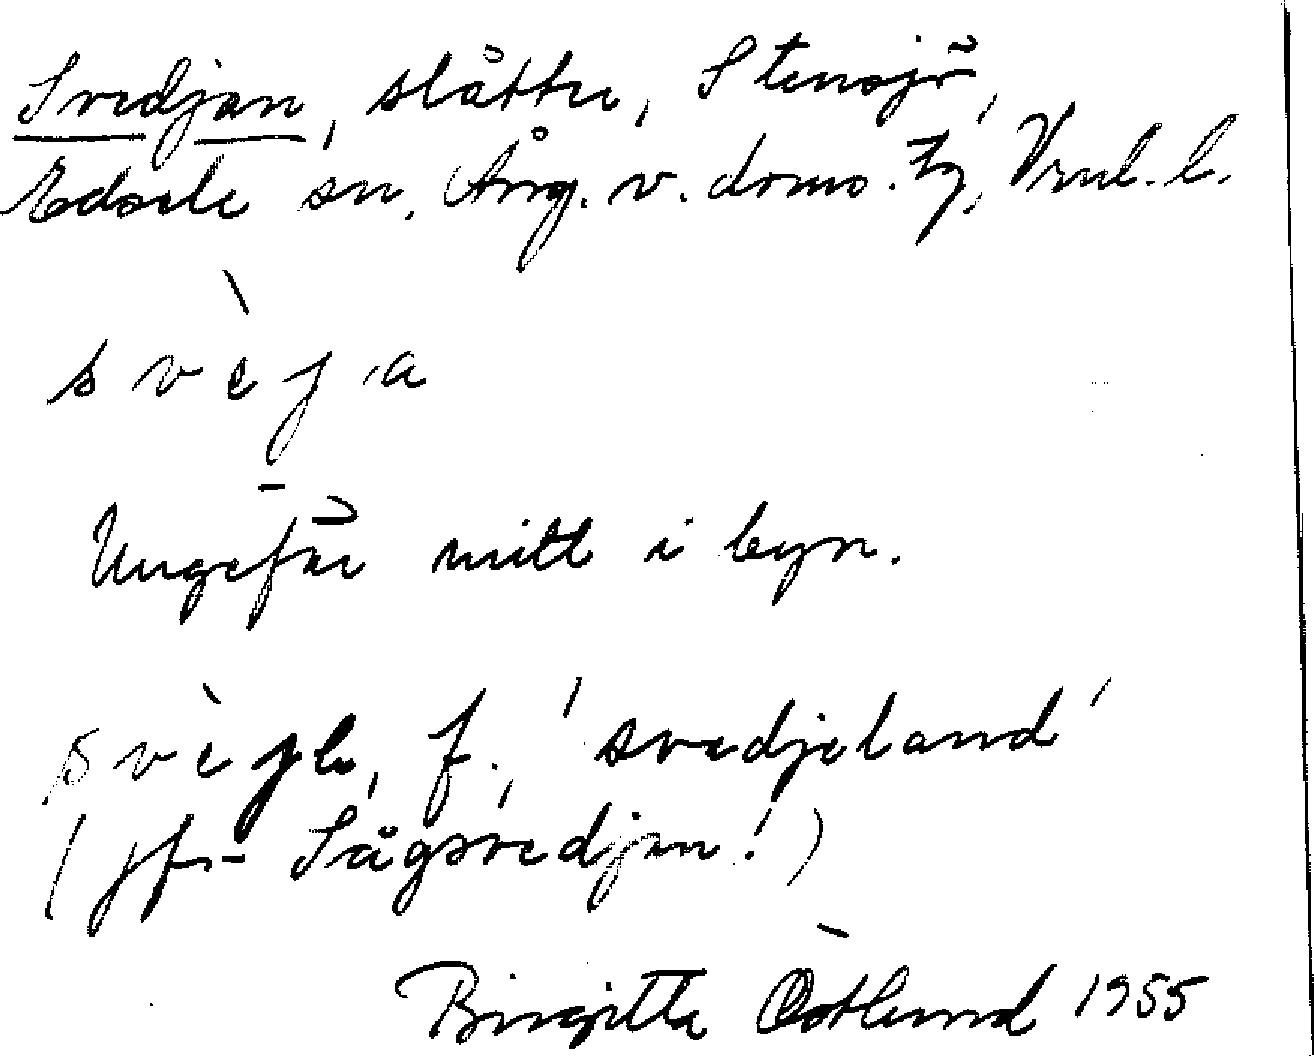 Svedjan, slåtter, Stensjö,
Edsele sn, Ång. v. doms. Fg, Vrul. l.
svèja
Ungefär mitt i byn.
svèje, f., 'svedjeland'
(jfr Sågsvedjan!)
Birgitta Östlund 1955